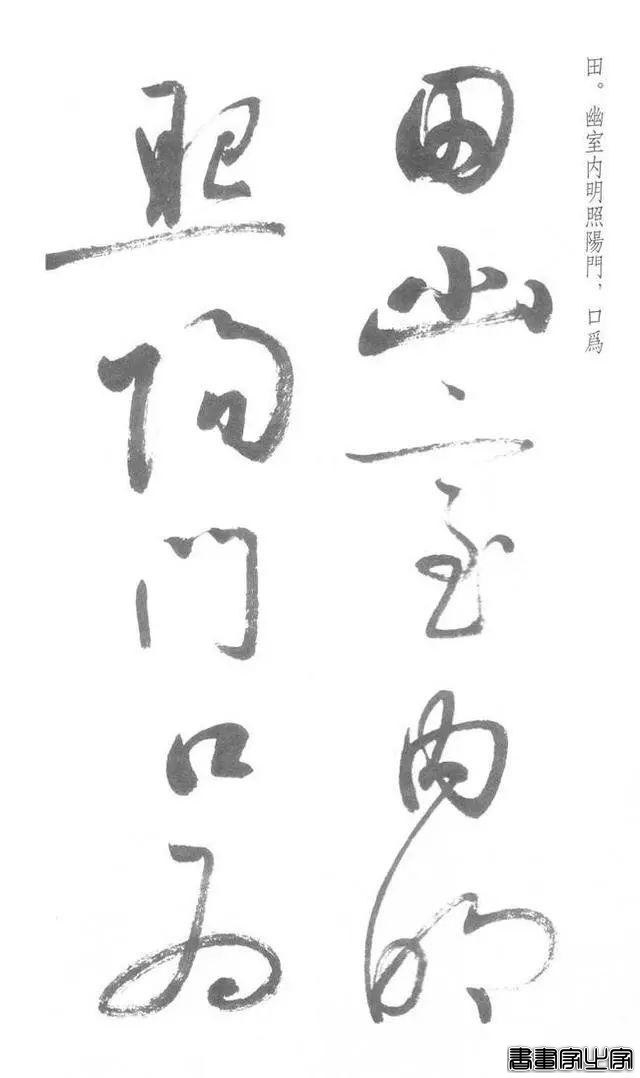 田。幽室内明照陽門，口爲
田幽室内明
照陽門口爲
書畫家之家